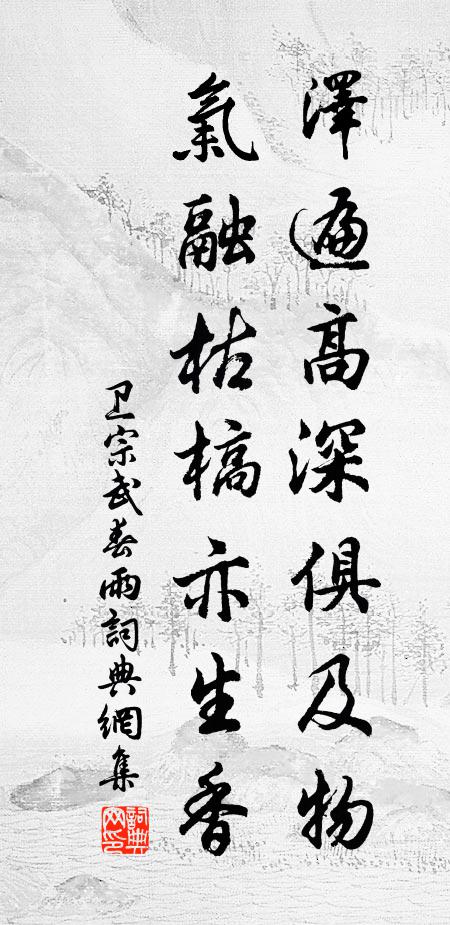 澤遍高深俱及物
氣融枯槁亦生香
卫宗武春雨詞典網集
詞典
网印